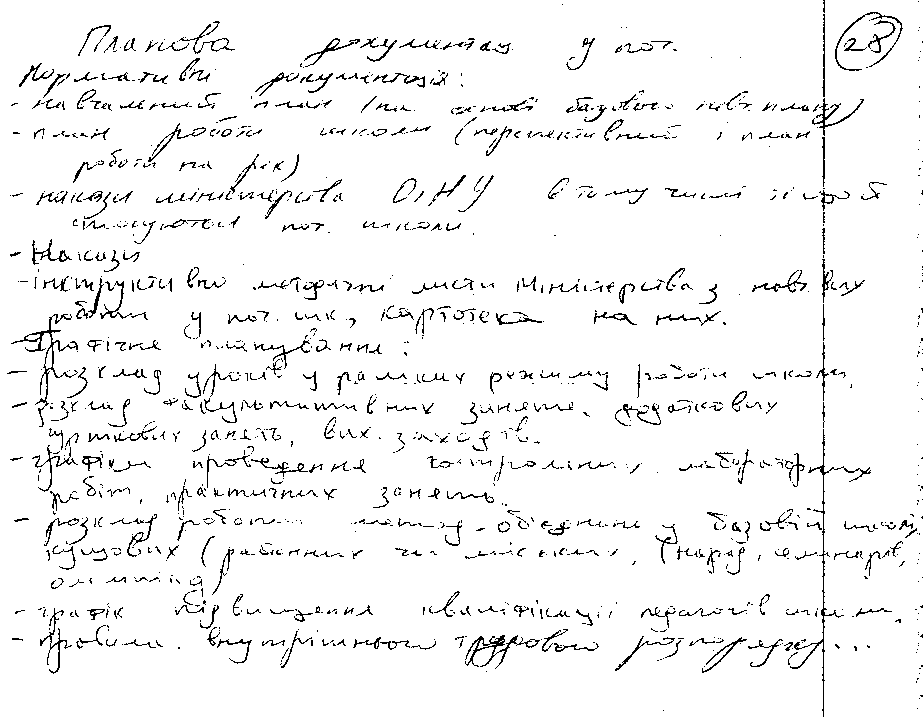 Планова документац у поч.
28
Нормативні документація:
- навчальний план (на основі базового навч. плану)
- план роботи школи (перспективний і план
роботи на рік)
- накази міністерства О і Н У в тому числі ті що й
стосуються поч. школи.
- Накази
- інструктивно методичні листи Міністерства з навч. вих
роботи у поч. шк, картотека на них.
- Графічне планування:
- розклад уроків у рамках режиму роботи школи,
- розклад факультативних занять, додаткових
гурткових занять, вих. заходів.
- графіки проведення контрольних, лабораторних
робіт, практичних занять
- розклад роботи метод. об'єднань у базовій школі,
кущових (районних чи міських, (нарад, семінарів,
олімпіад)
- графік підвищення кваліфікації педагогів школи.
- правила внутрішнього трудового розпорядку...